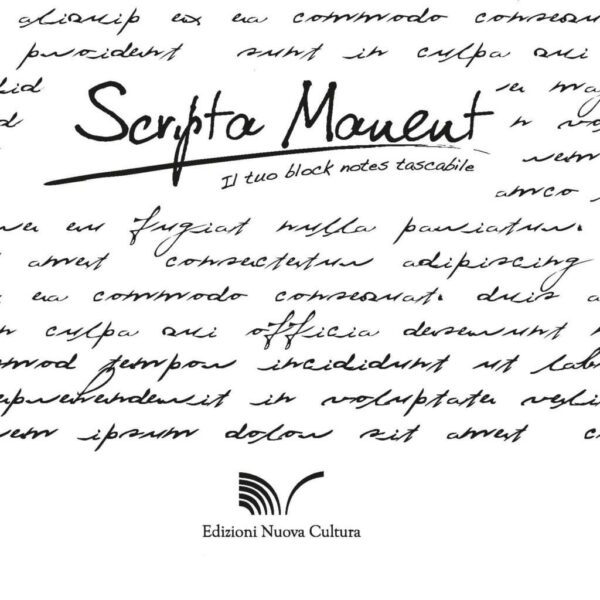 aliquip ex ea commodo consequ
proident sunt in culpa qui
Scripta Manent
Il tuo block notes tascabile
fugiat nulla pariatur.
amet consectetur adipiscing
ea commodo consequat. duis a
culpa qui officia deserunt
tempor incididunt ut lab
in voluptate veli
ipsum dolor sit amet c
Edizioni Nuova Cultura